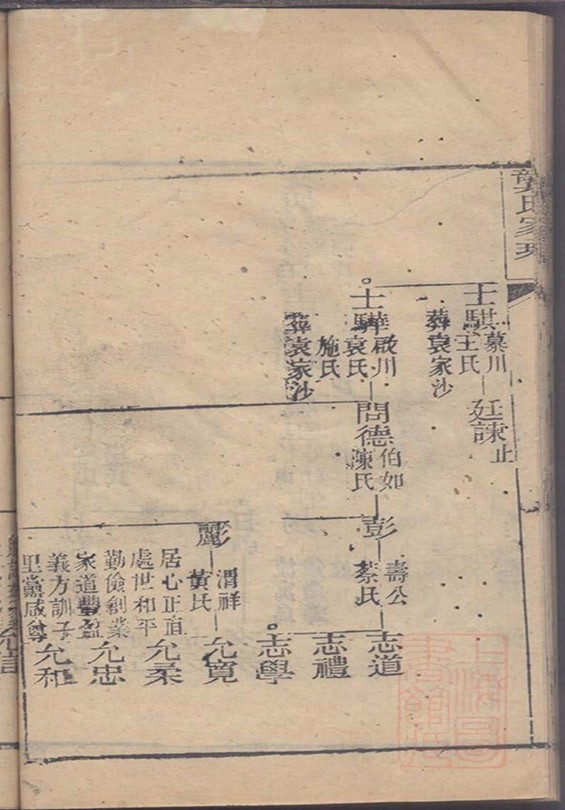 龔氏家
士騏 慕川 王氏
葬袁家沙
廷諫 止
士驊 啟川 袁氏 施氏
葬袁家沙
問德 伯如 陳氏
彭 壽公 蔡氏
志道
志禮
志學
彪 渭祥 黃氏
居心正直
處世和平
勤儉創業
家道豐盈
義方訓子
里黨咸尊
允寬
允柔
允忠
允和